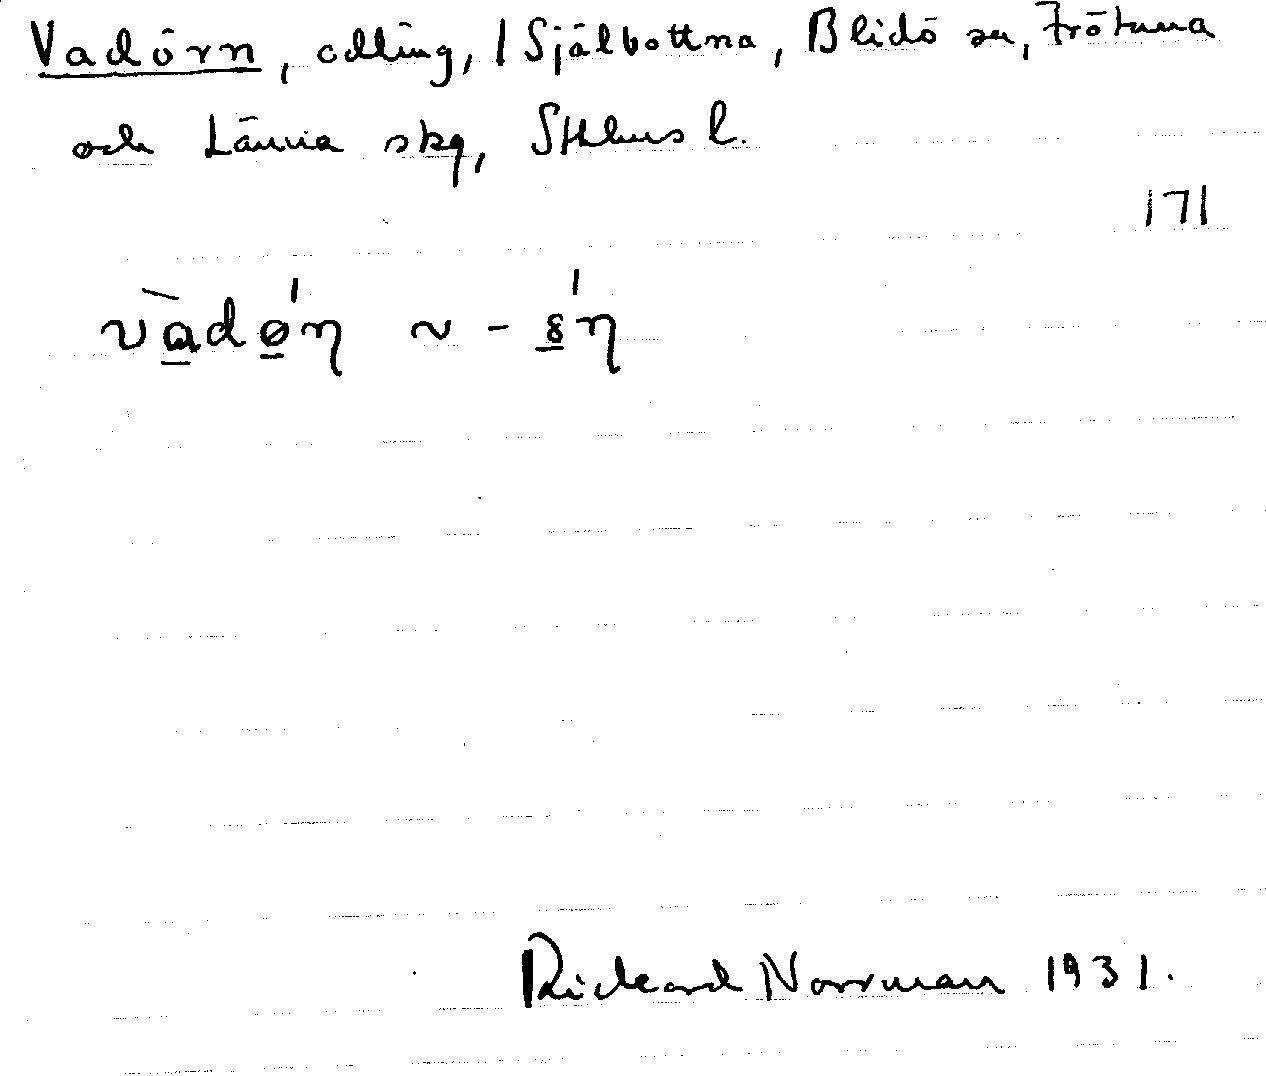 Vadörn, odling, I Själbottna, Blidö sn, Frötuna
och Länna skg, Sthlms l.
171
và̱dǿ̱ŋ ~ -
Rickard Norrman 1931.